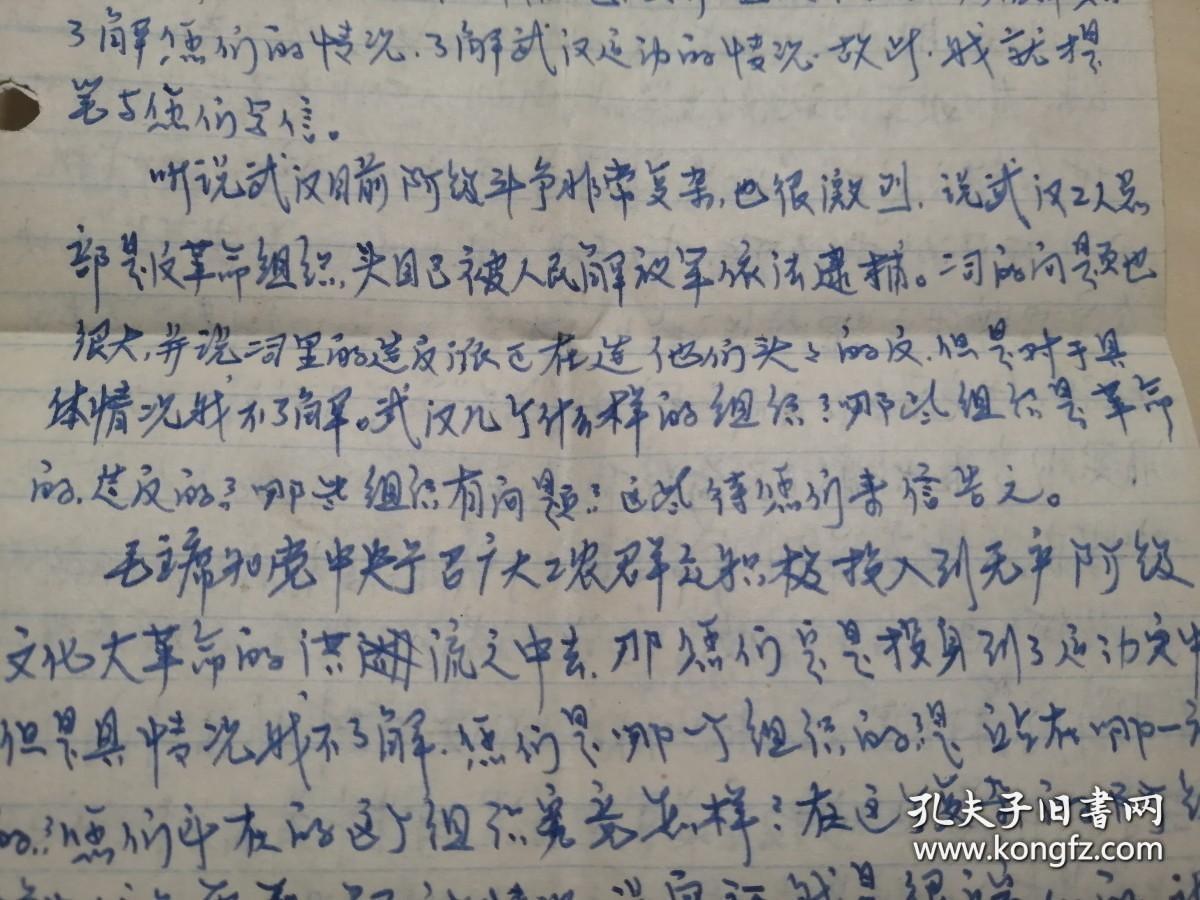 了解您们的情况.了解武汉运动的情况.故此.我就提
笔与您们写信。
听说武汉目前阶级斗争非常复杂,也很激烈.说武汉工人总
部是反革命组织,头目已被人民解放军依法逮捕。二司的问题也
很大,并说二司里的造反派正在造他们头头的反.但是对于具
体情况我不了解。武汉几个什么样的组织?哪些组织是革命
的.造反的?哪些组织有问题?这些待您们来信告之。
毛主席和党中央号召广大工农群众积极投入到无产阶级
文化大革命的洪流之中去.那您们定是投身到了运动
但是具情况我不了解.您们是哪个组织的 站在哪一
的?您们所在的这个组织究竟怎样?在这
孔夫子旧书网
www.kongfz.com